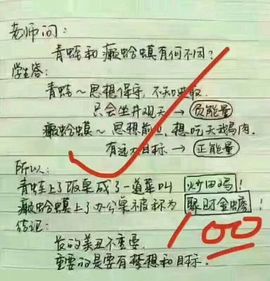 老师问:
青蛙和癞蛤蟆有何不同?
学生答:
青蛙~思想保守,不知进取
只会坐井观天→负能量
癞蛤蟆~思想前卫,想吃天鹅肉
有远大目标→正能量
所以:
青蛙上了饭桌成了一道菜叫炒田鸡!
癞蛤蟆上了办公桌被称为聚财金蟾!
结论:
长的美丑不重要,
重要的是要有梦想和目标.
100